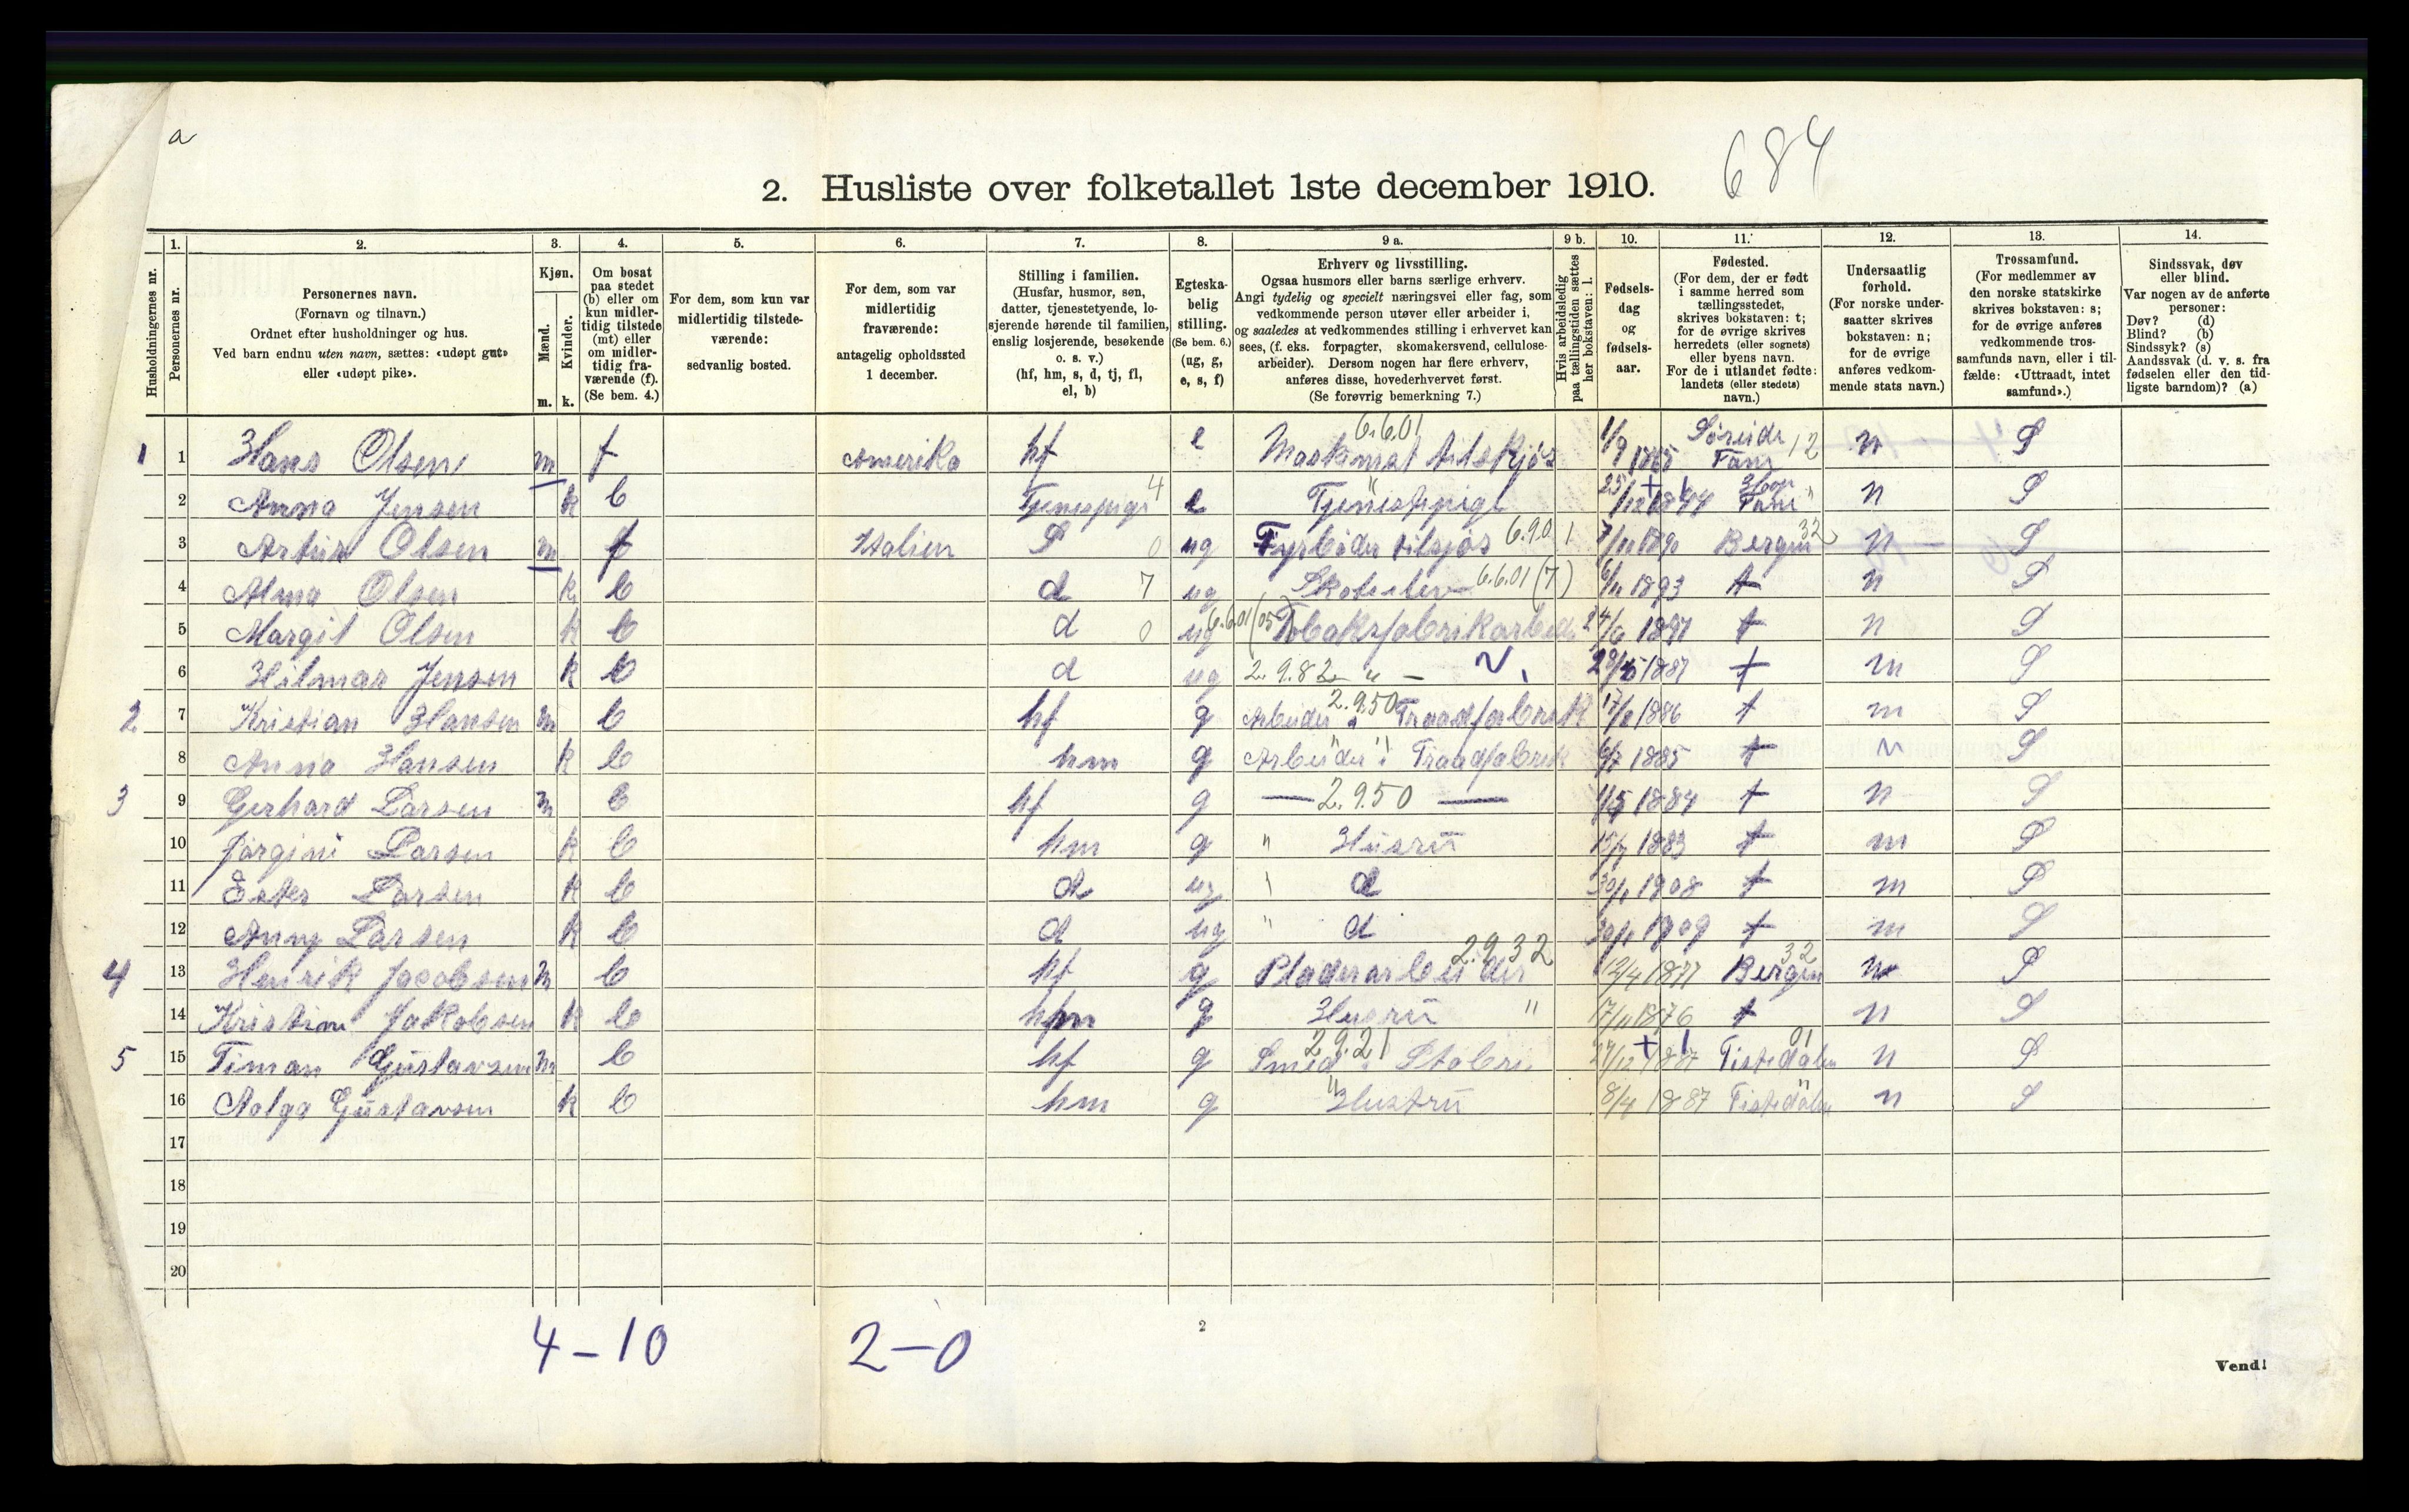 a
684
2. Husliste over folketallet 1ste december 1910.
Husholdningernes nr.
1. Personernes nr.
2. Personernes navn. (Fornavn og tilnavn.) Ordnet efter husholdninger og hus. Ved barn endnu uten navn, sættes: «udøpt gut» eller «udøpt pike».
3. Kjøn. Mænd. m. Kvinder. k.
4. Om bosat paa stedet (b) eller om kun midlertidig tilstede (mt) eller om midlertidig fraværende (f). (Se bem. 4.)
5. For dem, som kun var midlertidig tilstedeværende: sedvanlig bosted.
6. For dem, som var midlertidig fraværende: antagelig opholdssted 1 december.
7. Stilling i familien. (Husfar, husmor, søn, datter, tjenestetyende, losjerende hørende til familien, enslig losjerende, besøkende o. s. v.) (hf, hm, s, d, tj, fl, el, b)
8. Egteskabelig stilling. (Se bem. 6.) (ug, g, e, s, f)
9 a. Erhverv og livsstilling. Ogsaa husmors eller barns særlige erhverv. Angi tydelig og specielt næringsvei eller fag, som vedkommende person utøver eller arbeider i, og saaledes at vedkommendes stilling i erhvervet kan sees, (f. eks. forpagter, skomakersvend, cellulosearbeider). Dersom nogen har flere erhverv, anføres disse, hovederhvervet først. (Se forøvrig bemerkning 7.)
9 b. Hvis arbeidsledig paa tællingstiden sættes her bokstaven: l.
10. Fødselsdag og fødselsaar.
11. Fødested. (For dem, der er født i samme herred som tællingsstedet, skrives bokstaven: t; for de øvrige skrives herredets (eller sognets) eller byens navn. For de i utlandet fødte: landets (eller stedets) navn.)
12. Undersaatlig forhold. (For norske undersaatter skrives bokstaven: n; for de øvrige anføres vedkommende stats navn.)
13. Trossamfund. (For medlemmer av den norske statskirke skrives bokstaven: s; for de øvrige anføres vedkommende trossamfunds navn, eller i tilfælde: «Uttraadt, intet samfund».)
14. Sindssvak, døv eller blind. Var nogen av de anførte personer: Døv? (d) Blind? (b) Sindssyk? (s) Aandssvak (d. v. s. fra fødselen eller den tidligste barndom)? (a)
1 1 Hans Olsen m f Amerika hf e 6.6.01 1/9 1865 Søreide Fane 12 n S
2 Anna Jensen k b 4 e Tjenestepige 25/12 Fane " n S
3 Artur Olsen m f Italien S 0 ug Fyrbøder tilsjøs 6.9.01 1890 Bergen 32 n S
4 Alma Olsen k b d 7 ug 6.6.01 (7) 1893 t n S
5 Margit Olsen k b d 0 ug 6.6.01 (05) Tobaksfabrikarbeider 24/6 1897 t n S
6 Hilmar Jensen k b d ug 2.9.82 " — 1887 t n S
2 7 Kristian Hansen m b hf g 2.9.50 Arbeider i Traadfabrik 1886 t n S
8 Anna Hansen k b hm g Arbeider i Traadfabrik 1885 t n S
3 9 Gerhard Larsen m b hf g — 2.9.50 — 1884 t n S
10 Jørgine Larsen k b hm g " Husru 1883 t n S
11 Ester Larsen k b d ug d 1908 t n S
12 Anny Larsen k b d ug " d 1909 t n S
4 13 Henrik Jacobsen m b hf g Pladearbeider 2.9.32 12/4 1877 Bergen 32 n S
14 Kristine Jakobsen k b hm g Husru " 17/11 1876 t n S
5 15 Timan Gustavsen m b hf g Smed 2.9.21 27/12 1887 Tistedalen 01 n S
16 Aslga Gustavsen k b hm g " Hustru 8/4 1887 Tistedalen " n S
17
18
19
20
4 – 10 2 – 0
2
Vend!